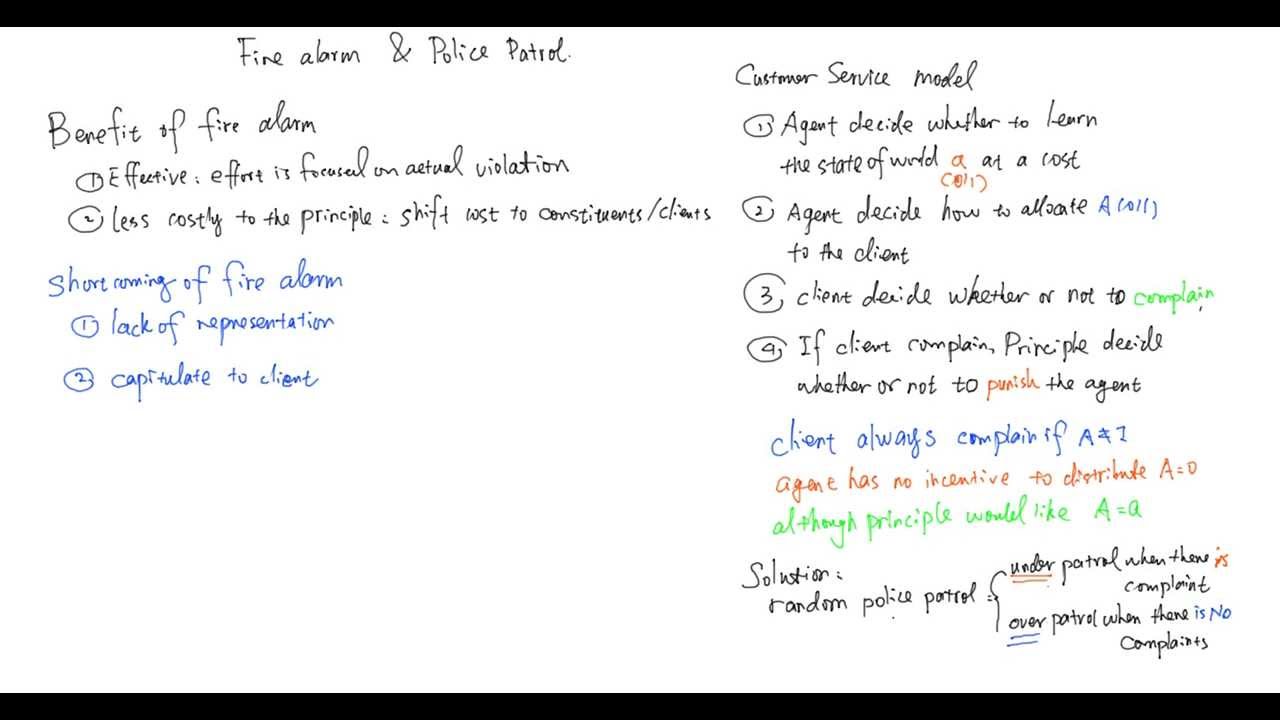 Fire alarm & Police Patrol.
Benefit of fire alarm
① Effective: effort is focused on actual violation
② less costly to the principle: shift cost to constituents/clients
Shortcoming of fire alarm
① lack of representation
② capitulate to client
Customer Service model
① Agent decide whether to learn
the state of world a at a cost
(0,1)
② Agent decide how to allocate A(0,1)
to the client
③ client decide whether or not to complain,
④ If client complain, Principle decide
whether or not to punish the agent
client always complain if A≠1
agent has no incentive to distribute A=0
although principle would like A=a
Solution:
random police patrol =
under patrol when there is
complaint
over patrol when there is NO
complaints